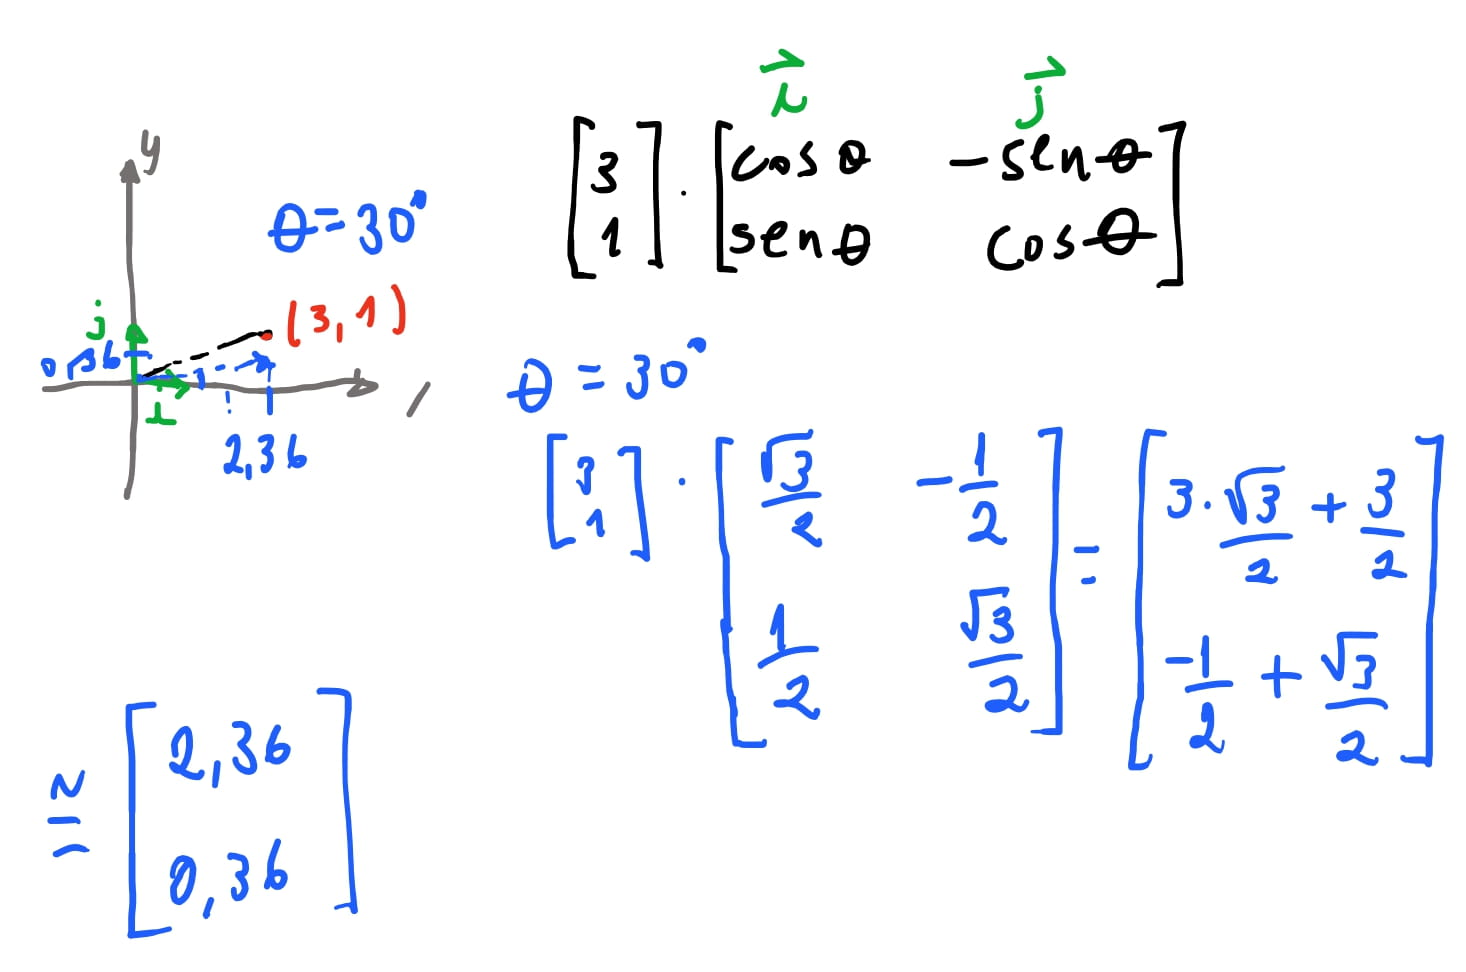 y
θ = 30°
j
(3, 1)
0,36
i
2,36
i⃗ j⃗
[3 1] · [cos θ -sen θ
sen θ cos θ]
θ = 30°
[3 1] · [√3/2 -1/2
1/2 √3/2] = [3·√3/2 + 3/2
-1/2 + √3/2]
≅ [2,36
0,36]